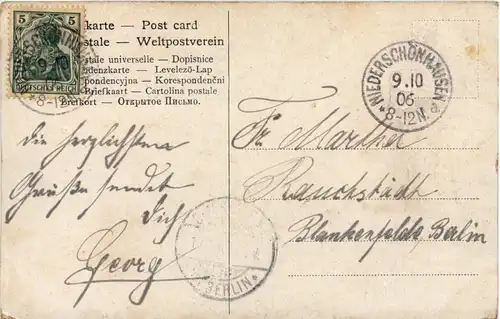 5 5
DEUTSCHES REICH
karte — Post card
stale — Weltpostverein
stale universelle — Dopisnice
denzkarte — Levelező-Lap
pondencyjna — Korespondenční
Briefkaart — Cartolina postale
Brefkort — Открытое Письмо.
NIEDERSCHÖNHAUSEN
9.10
06
*8-12N. a.
Die herzlichsten
Grüße sendet
Dich
Georg
Fr. Martha
Rauchstädt
Blankenfelde, Berlin
BERLIN